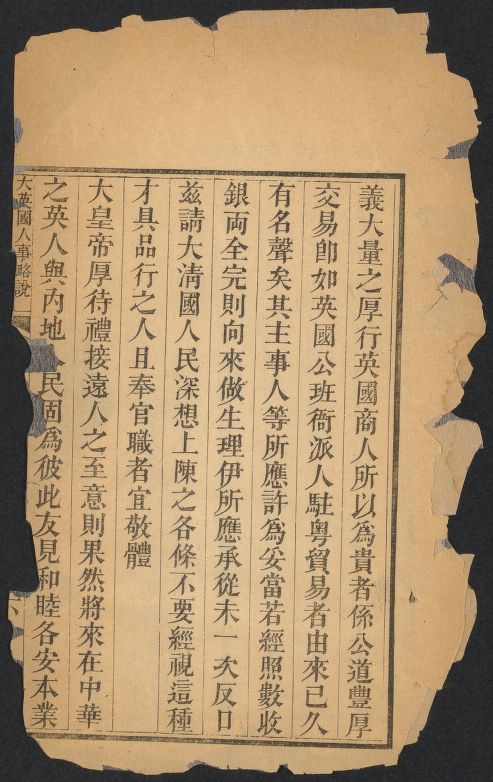 義大量之厚行英國商人所以為貴者係公道豐厚
交易卽如英國公班衙派人駐粤貿易者由來已久
有名聲矣其主事人等所應許為妥當若經照數收
銀両全完則向來做生理伊所應承從未一次反口
兹請大清國人民深想上陳之各條不要經視這種
才具品行之人且奉官職者宜敬體
大皇帝厚待禮接遠人之至意則果然將來在中華
之英人與內地人民固為彼此友見和睦各安本業
大英國人事略說
六